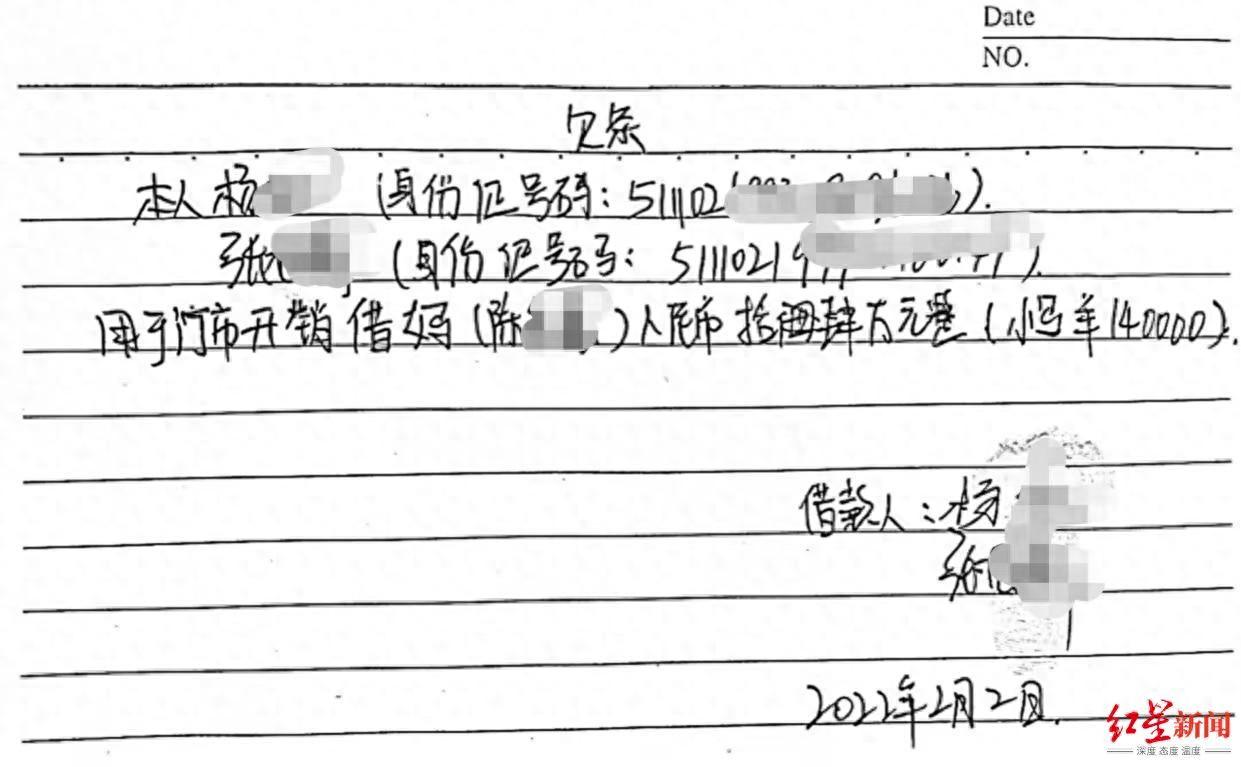 Date
NO.
欠条
本人杨 (身份证号码: 511102 ).
张 (身份证号码: 5111021 ).
用于门市开销借妈(陈 )人民币拾肆万元整(小写￥140000).
借款人:杨
张
2022年2月2日.
红星新闻
深度 态度 温度